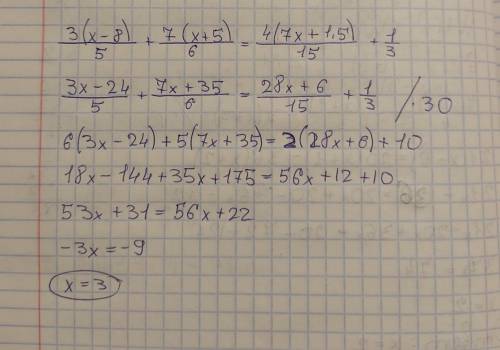 3(x-8)/5 + 7(x+5)/6 = 4(7x+1,5)/15 + 1/3
3x-24/5 + 7x+35/6 = 28x+6/15 + 1/3 /·30
6(3x-24)+5(7x+35)=2(28x+6)+10
18x-144+35x+175=56x+12+10
53x+31=56x+22
-3x=-9
x=3